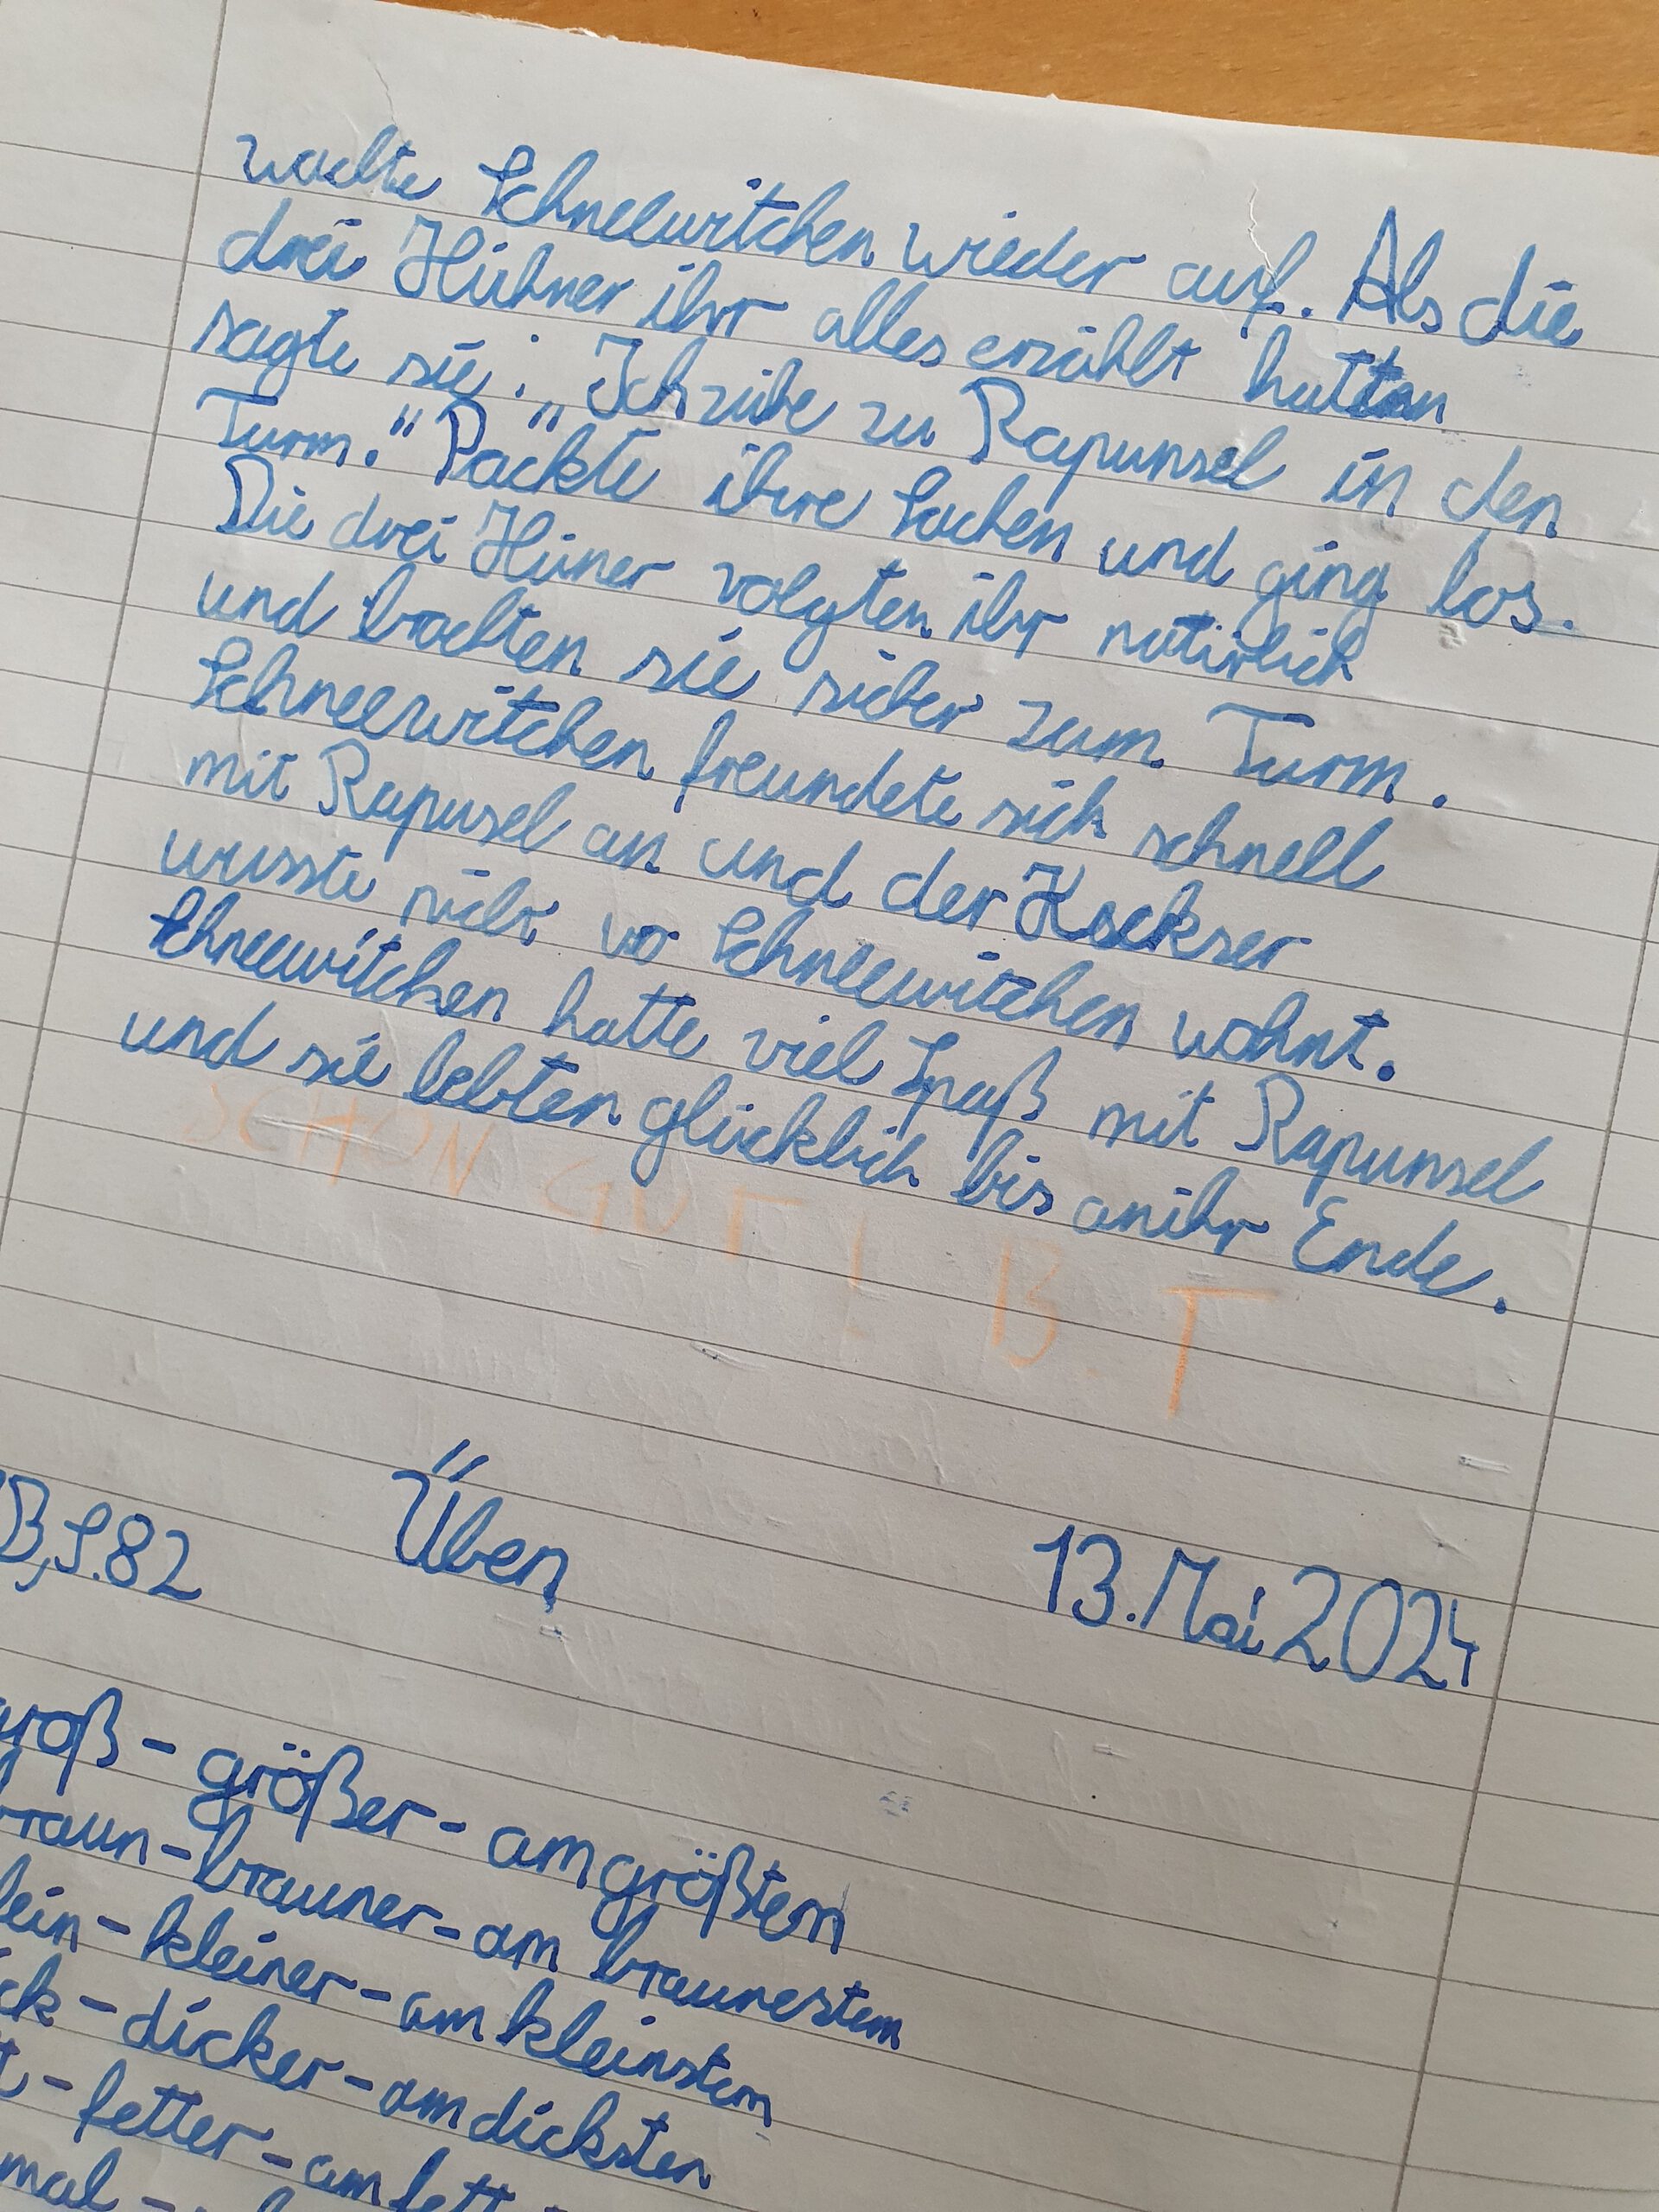 wachte Schneewitchen wieder auf. Als die
drei Hühner ihr alles erzählt hatten
sagte sie: „Ich ziehe zu Rapunsel in den
Turm." Packte ihre Sachen und ging los.
Die drei Hüner volgten ihr natürlich
und brachten sie sicher zum Turm.
Schneewitchen freundete sich schnell
mit Rapusel an und der
wusste nicht wo Schneewitchen wohnt.
Schneewitchen hatte viel Spaß mit Rapunsel
und sie lebten glücklich bis an ihr Ende.
SCHON GUT! B.T
B, S.82 Üben 13. Mai 2024
groß - größer - am größten
braun - brauner - am braunesten
lein - kleiner - am kleinsten
ck - dicker - am dicksten
t - fetter - am fett
mal -